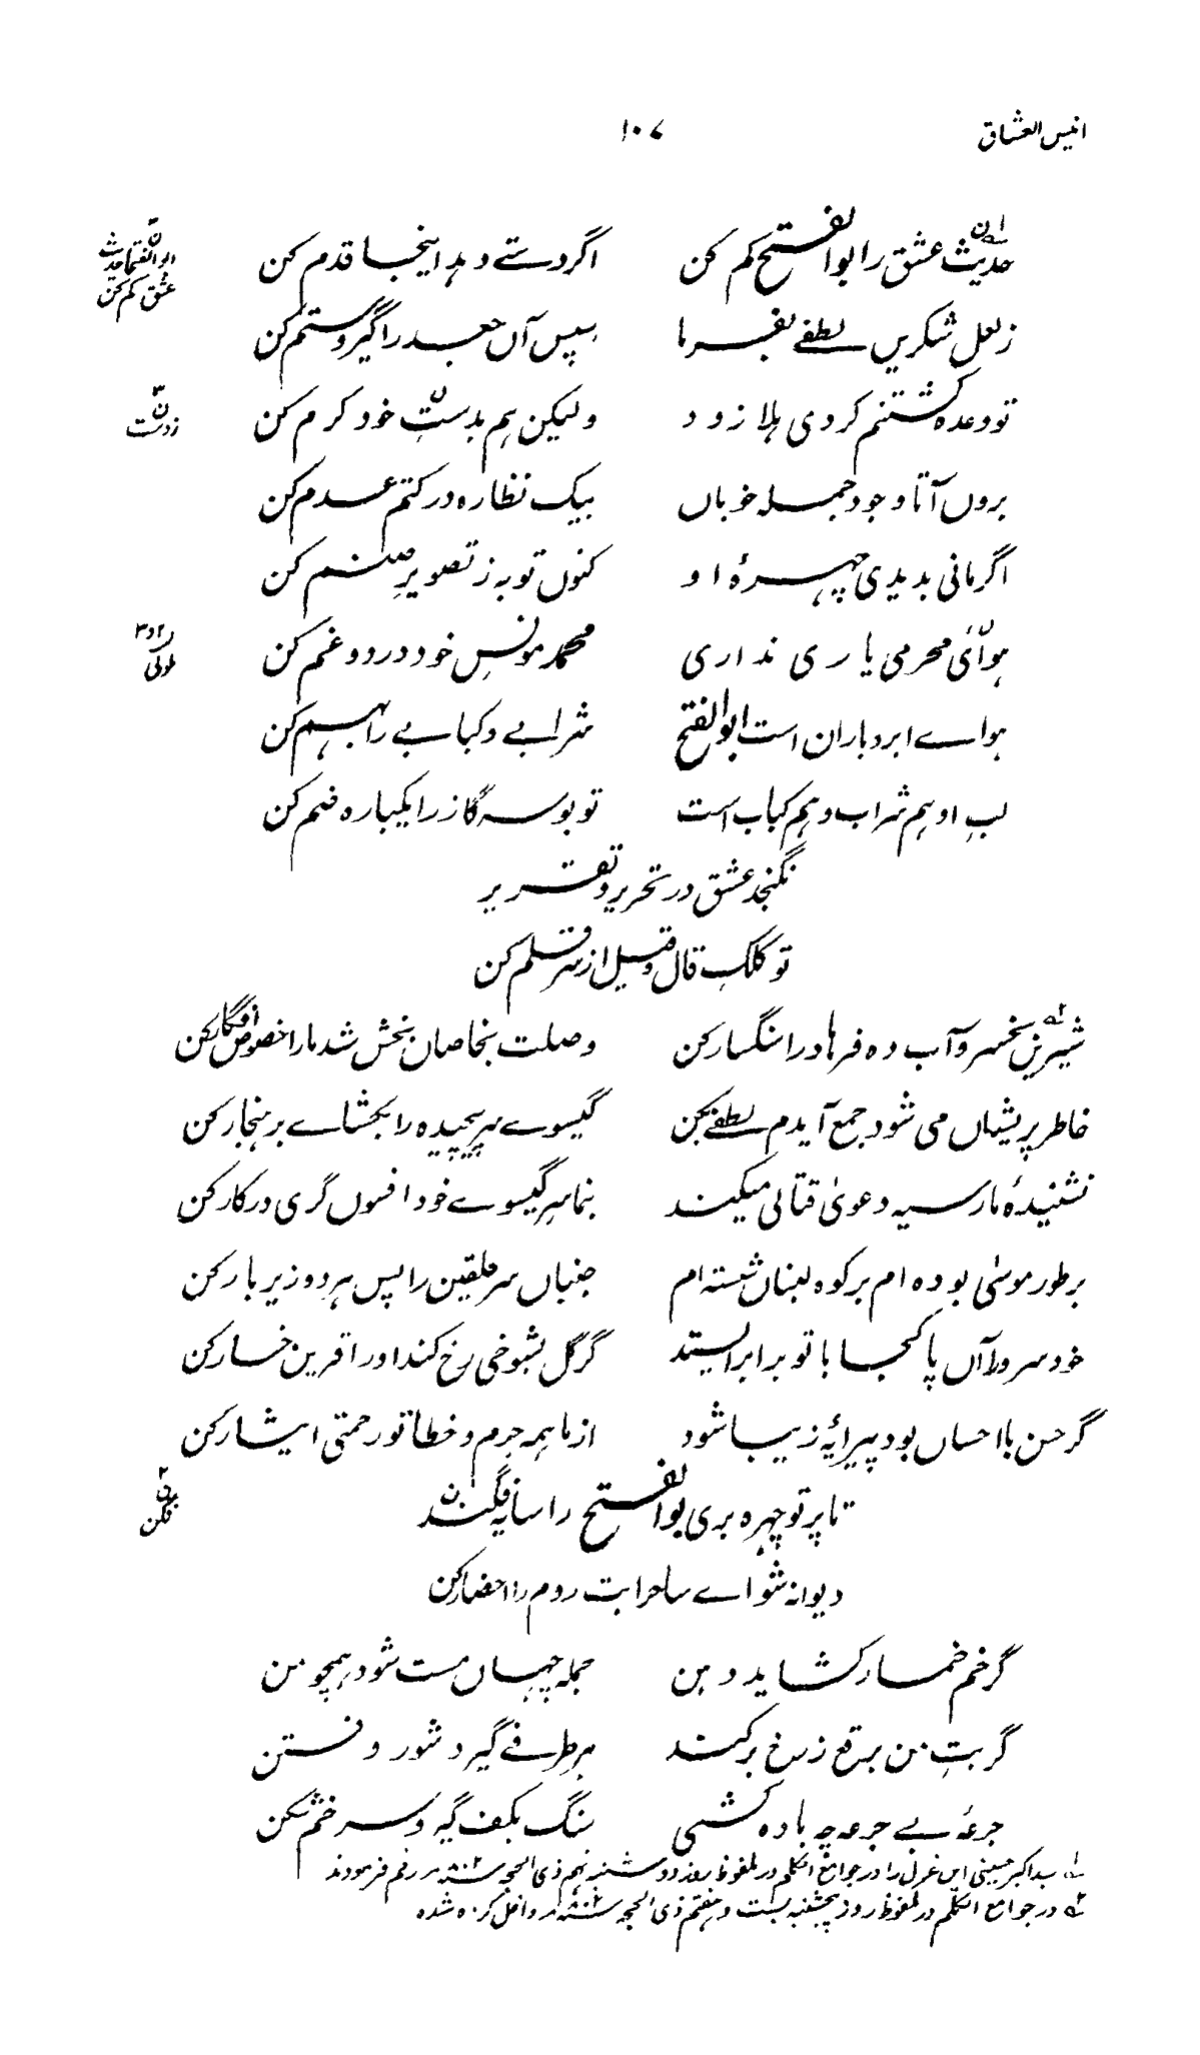 انیس العشاق ۱۰۷
حدیث عشق را ابوالفتح کم کن اگر دستے دہد اینجا قدم کن
ابوالفتحا حدیث
عشق کم کن
ز لعل شکریں لطفے بفرما سپس آں جعد را گیر و ستم کن
تو وعدہ کشتنم کردی ہلا زود ولیکن ہم بدست خود کرم کن
زدست
بروں آ تا وجود جملہ خوباں بیک نظارہ در کتم عدم کن
اگر مانی بدیدی چہرۂ او کنوں توبہ ز تصویرِ صنم کن
ہوائی محرمی یاری نداری محمد مونسِ خود درد و غم کن
ہواے ابر و باران است ابوالفتح شرابے و کبابے را بہم کن
لبِ او ہم شراب و ہم کباب است تو بوسہ گاز را یکبارہ ضم کن
نگنجد عشق در تحریر و تقریر
تو کلکِ قال و قیل از سر قلم کن
شیریں بخسرو آب دہ فرہاد را سنگسار کن وصلت بخاصان بخش شد ما را خصوص افگار کن
خاطر پریشاں می شود جمع آیدم لطفے بکن گیسوے سرپیچیدہ را بکشاے برہنجار کن
نشنیدۂ مار سیہ دعویٰ قتالی میکند بنما سرِ گیسوے خود افسوں گری در کار کن
بر طور موسیٰ بودہ ام بر کوہ لبنان شستہ ام جنباں سر حلقین را پس ہر دو زیر بار کن
خود سرو را آں پا کجا با تو برابر ایستد گر گل بشوخی رخ کند او را قرین خار کن
گر حسن با احساں بود پیرایۂ زیبا شود از ما ہمہ جرم و خطا تو رحمتی ایثار کن
تا پرتو چہرہ بری بوالفتح را سایہ فگند
فگن
دیوانہ شو اے ساحرا بت روم را احضار کن
گر خم خمار کشاید دہن جملہ جہاں مست شود ہمچو من
گر بتِ من برقع ز رخ برکند ہر طرفے گیرد شور و فتن
جرعۂ بے جرعہ چہ بادہ کشی سنگ بکف گیر و سر خم شکن
لہ سید اکبر حسینی ایں غزل را در جوامع الکلم در ملفوظ روز دوشنبہ نہم ذی الحجہ سنہ ۸۰۲ھ رقم فرمودند
در جوامع الکلم در ملفوظ روز پنجشنبہ بست و ہفتم ذی الحجہ سنہ ۸۰۲ھ داخل کردہ شدہ